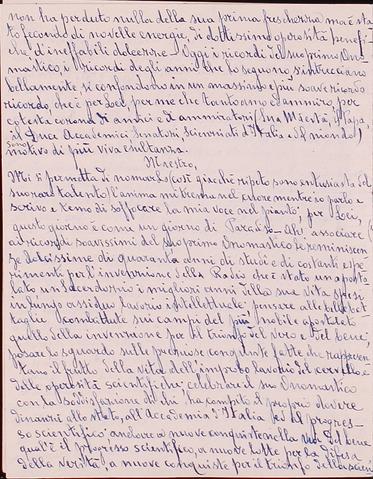 non ha perduto nulla della sua prima freschezza ma è sta
to fecondo di novelle energie, di dottissime operosità benefi
che d'ineffabili dolcezze. Oggi i ricordi del suo primo Ono
mastico, i ricordi degli anni che lo seguono s'intrecciano
bellamente, si confondono in un amassimo più soave ricordo
ricordo, che è per Lei, per me che tanto amo ed ammiro, per
cotesta corona di amici ed ammiratori (Sua Maestà, il Papa,
il Duce Accademici Senatori scienziati d'Italia e il mondo)
sono motivo di più viva esultanza.
Maestro,
Mi si permetta di nomarlo così giacchè ripeto sono entusiasta del
suo raro talento l'anima mi trema nel cuore mentre io parlo e
scrivo e temo di soffocare la mia voce nel pianto, per Lei,
questo giorno è come un giorno di Paradiso Ah! associare
ai ricordi soavissimi del suo primo Onomastico le reminiscen
ze dolcissime di quaranta anni di studi e di costanti espe
rimenti per l'invenzione della Radio che è stato un aposto
lato un sacerdozio i migliori anni della sua vita spesi
in lungo assiduo lavorio intellettuale: pensare alle belle bat
taglie combattute sui campi del più nobile apostolato
quello della invenzione per il trionfo del vero e del bene;
posare lo sguardo sulle preziose conquiste fatte che rappresen
tano il frutto della vita dell'improbo lavorio del cervello e
delle operosità scientifiche; celebrare il suo Onomastico
con la soddisfazione di chi ha compiuto il proprio dovere
dinanzi allo stato, all'Accademia d'Italia ed al progres
so scientifico; anelare a nuove conquiste nella via del bene
qual'è il progresso scientifico, a nuove lotte per la difesa
della verità, a nuove conquiste per il trionfo della scien